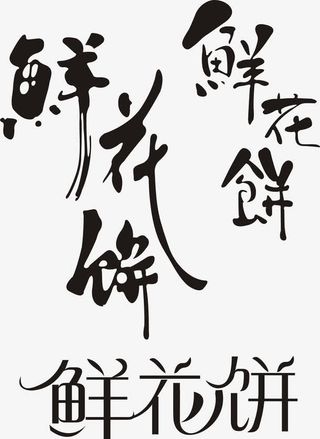 鲜花饼
鲜花餅
鲜花饼